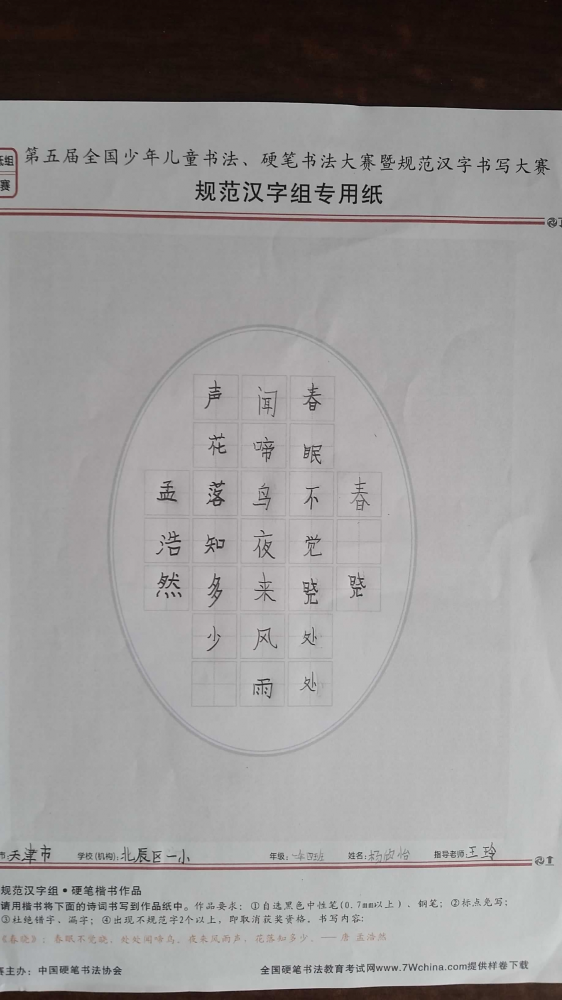 组
赛
第五届全国少年儿童书法、硬笔书法大赛暨规范汉字书写大赛
规范汉字组专用纸
春晓
春眠不觉晓处处
闻啼鸟夜来风雨
声花落知多少
孟浩然
市 天津市 学校(机构): 北辰区一小 年级: 一年四班 姓名: 指导老师: 王玲
规范汉字组·硬笔楷书作品
请用楷书将下面的诗词书写到作品纸中。作品要求:①自选黑色中性笔(0.7mm以上)、钢笔;②标点免写;
③杜绝错字、漏字;④出现不规范字2个以上,即取消获奖资格。书写内容:
《春晓》:春眠不觉晓,处处闻啼鸟。夜来风雨声,花落知多少。——唐 孟浩然
赛主办:中国硬笔书法协会 全国硬笔书法教育考试网www.7Wchina.com提供样卷下载